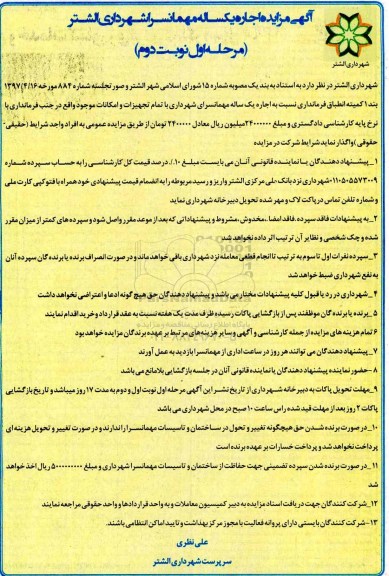 آگهی مزایده اجاره یکساله مهمانسرا شهرداری الشتر
(مرحله اول نوبت دوم)
شهرداری الشتر
شهرداری الشتر در نظر دارد به استناد به بند یک مصوبه شماره ۱۵ شورای اسلامی شهر الشتر و صورتجلسه شماره ۸۸۴ مورخه ۱۳۹۷/۴/۱۶
بند ۱ کمیته انطباق فرمانداری نسبت به اجاره یک ساله مهمانسرای شهرداری با تمام تجهیزات و امکانات موجود واقع در جنب فرمانداری با
نرخ پایه کارشناسی دادگستری و مبلغ ۲۴۰۰۰۰۰۰ میلیون ریال معادل ۲۴۰۰۰۰۰ تومان از طریق مزایده عمومی به افراد واجد شرایط (حقیقی-
حقوقی) واگذار نماید شرایط شرکت در مزایده
۱_ پیشنهاد دهندگان یا نماینده قانونی آنان می بایست مبلغ ۱۰٪ درصد قیمت کل کارشناسی را به حساب سپرده شماره
۰۱۱۰۵۰۵۵۷۳۰۰۹ شهرداری نزد بانک ملی مرکزی الشتر واریز و رسید مربوطه را به انضمام قیمت پیشنهادی خود همراه با فتوکپی کارت ملی
و شماره تلفن تماس در پاکت لاک و مهر شده تحویل دبیرخانه شهرداری نماید
۲_ به پیشنهادات فاقد سپرده، فاقد امضا، مخدوش، مشروط و پیشنهاداتی که بعد از موعد مقرر واصل شود و سپرده های کمتر از میزان مقرر
شده و چک شخصی و نظایر آن ترتیب اثر داده نخواهد شد
۳_ سپرده نفرات اول تا سوم به ترتیب تا انجام قطعی معامله نزد شهرداری باقی خواهد ماند و در صورت انصراف برنده یا برندگان سپرده آنان
به نفع شهرداری ضبط خواهد شد
۴_ شهرداری در رد یا قبول کلیه پیشنهادات مختار می باشد و پیشنهاد دهندگان حق هیچ گونه ادعا و اعتراضی نخواهد داشت
۵_ برنده یا برندگان موظفند پس از بازگشایی پاکات رسیده ظرف مدت یک هفته نسبت به عقد قرارداد و خرید اقدام نمایند
۶ تمام هزینه های مزایده از جمله کارشناسی و آگهی و سایر هزینه های مرتبط بر عهده برندگان مزایده خواهد بود
۷_ پیشنهاد دهندگان می توانند هر روز در ساعت اداری از مهمانسرا بازدید به عمل آورند
۸_ حضور نماینده پیشنهاد دهندگان یا نماینده قانونی آنان در جلسه بازگشایی بلامانع می باشد
۹_ مهلت تحویل پاکات به دبیر خانه شهرداری از تاریخ نشر این آگهی مرحله اول نوبت اول و دوم به مدت ۱۷ روز میباشد و تاریخ بازگشایی
پاکات ۲ روز بعد از مهلت قید شده راس ساعت ۱۰ صبح در محل شهرداری می باشد
۱۰_ در صورت برنده شدن حق هیچگونه تغییر و تحول در ساختمان و تاسیسات مهمانسرا را ندارند و در صورت تغییر و تحویل هزینه ای
پرداخت نخواهد شد و پرداخت خسارات بر عهده برنده است
۱۱_ در صورت برنده شدن سپرده تضمینی جهت حفاظت از ساختمان و تاسیسات مهمانسرا شهرداری و مبلغ ۵۰۰۰۰۰۰۰۰ ریال اخذ خواهد
شد
۱۲_ شرکت کنندگان جهت دریافت اسناد مزایده به دبیر کمیسیون معاملات و به واحد قراردادها و واحد حقوقی مراجعه نمایند
۱۳- شرکت کنندگان بایستی دارای پروانه فعالیت با مجوز مرکز بهداشت و تایید اماکن انتظامی باشند.
علی نظری
سرپرست شهرداری الشتر